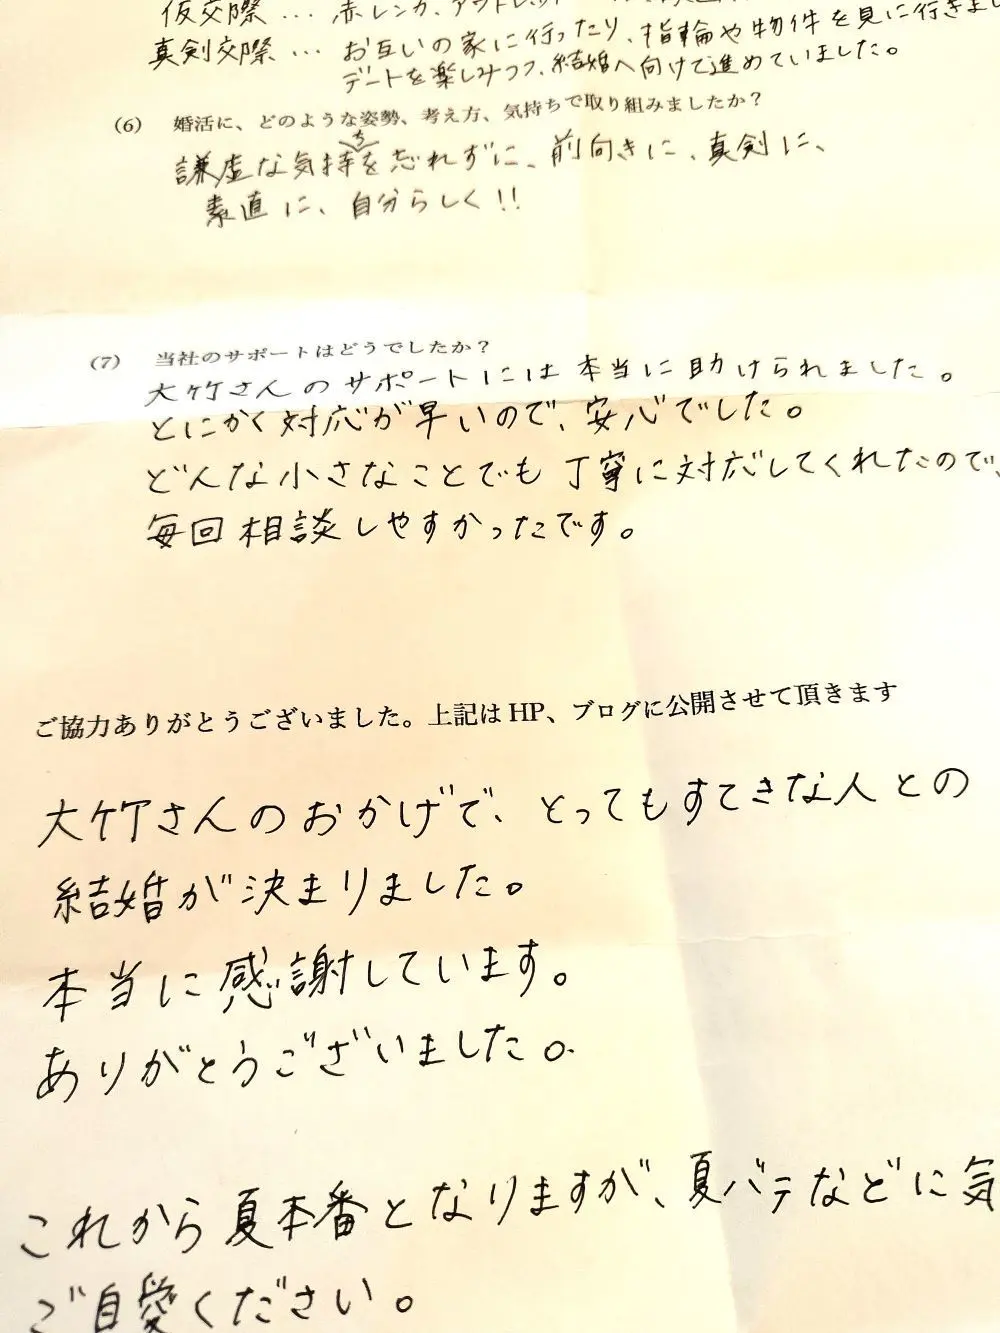 仮交際 … 赤レンガ、アウトレット
真剣交際 … お互いの家に行ったり、指輪や物件を見に行きまし
デートを楽しみつつ、結婚へ向けて進めていました。
(6) 婚活に、どのような姿勢、考え方、気持ちで取り組みましたか？
謙虚な気持ちを忘れずに、前向きに、真剣に、
素直に、自分らしく!!
(7) 当社のサポートはどうでしたか？
大竹さんのサポートには本当に助けられました。
とにかく対応が早いので、安心でした。
どんな小さなことでも丁寧に対応してくれたので、
毎回相談しやすかったです。
ご協力ありがとうございました。上記はHP、ブログに公開させて頂きます
大竹さんのおかげで、とってもすてきな人との
結婚が決まりました。
本当に感謝しています。
ありがとうございました。
これから夏本番となりますが、夏バテなどに気
ご自愛ください。